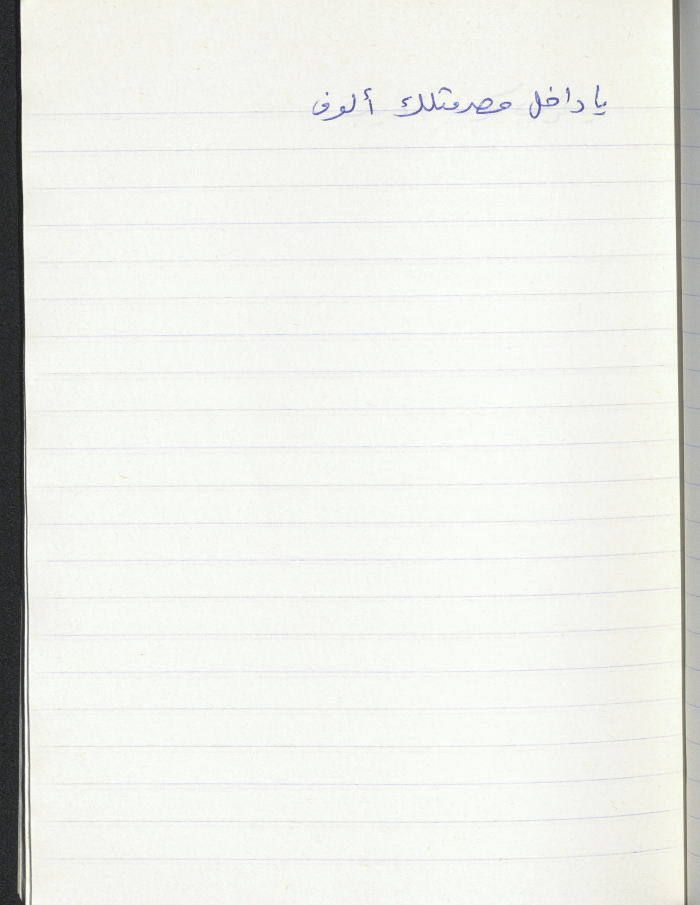 يا داخل مصر متلك ألوف